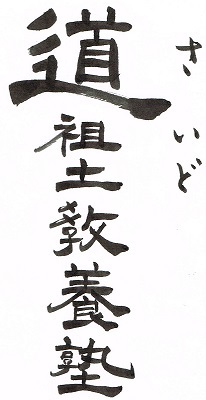 さいど
道祖土教養塾